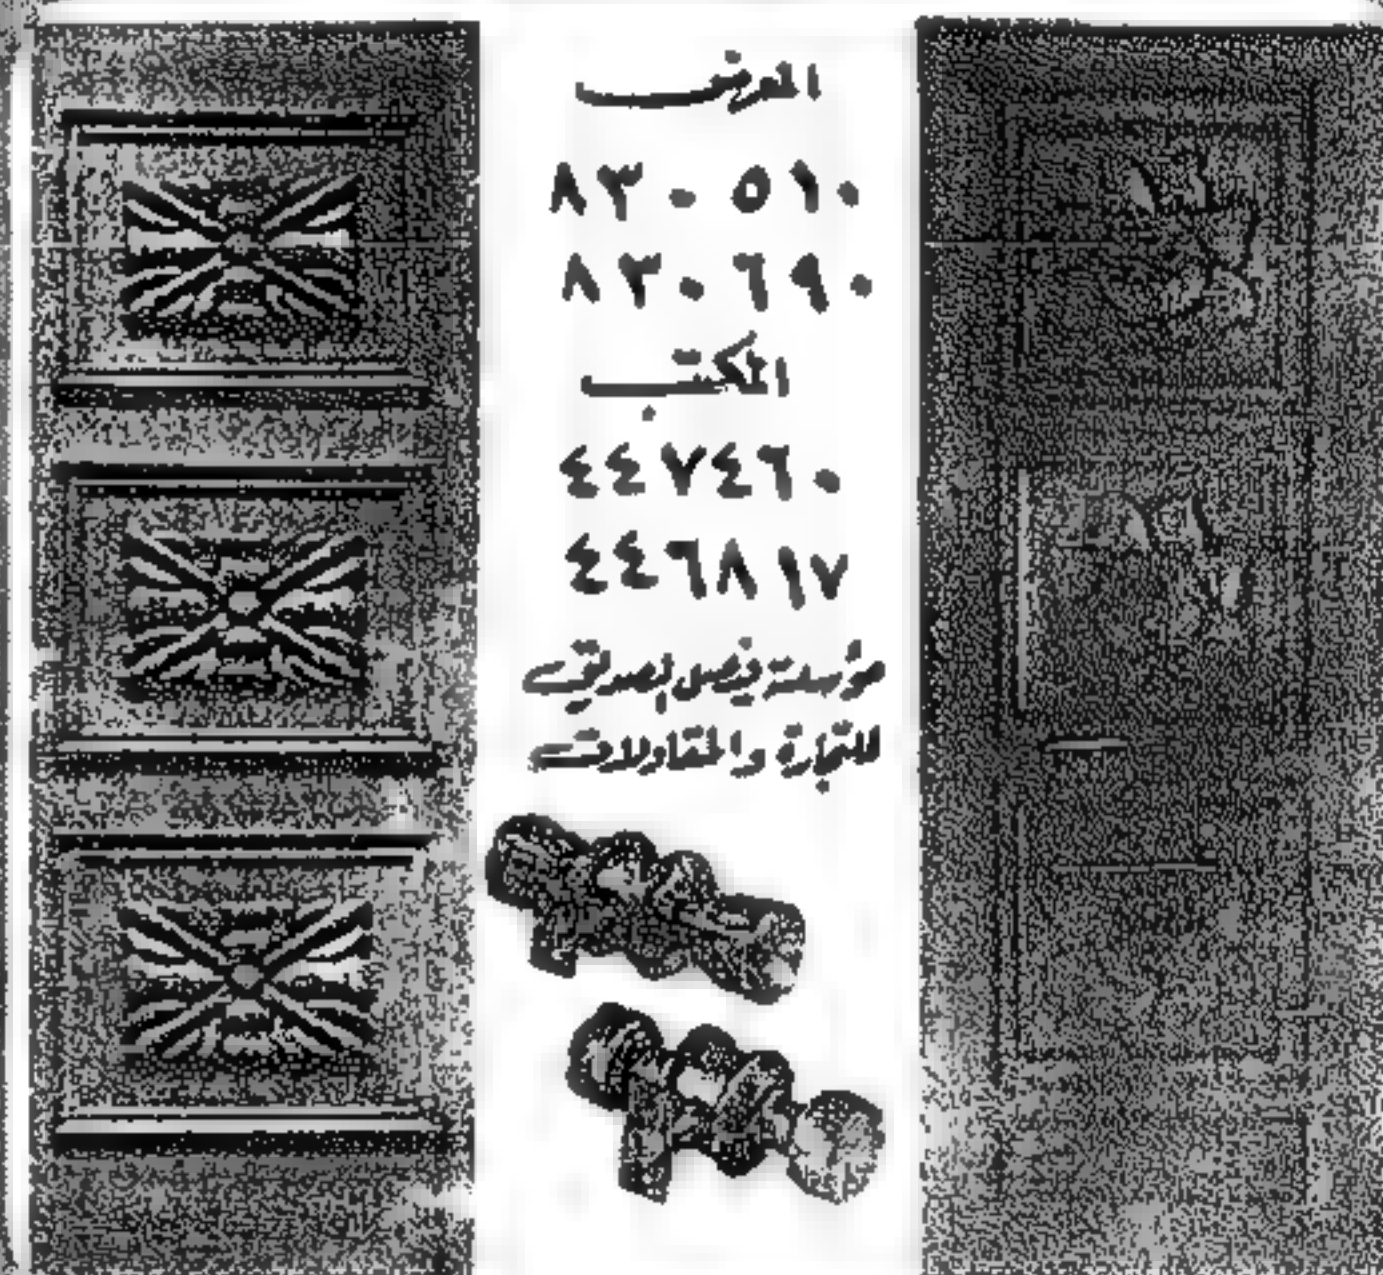 المعرض
٨٣٠٥١٠
٨٣٠٦٩٠
المكتب
٤٤٧٤٦٠
٤٤٦٨١٧
مؤسسة فيصل الصديق
للتجارة والمقاولات